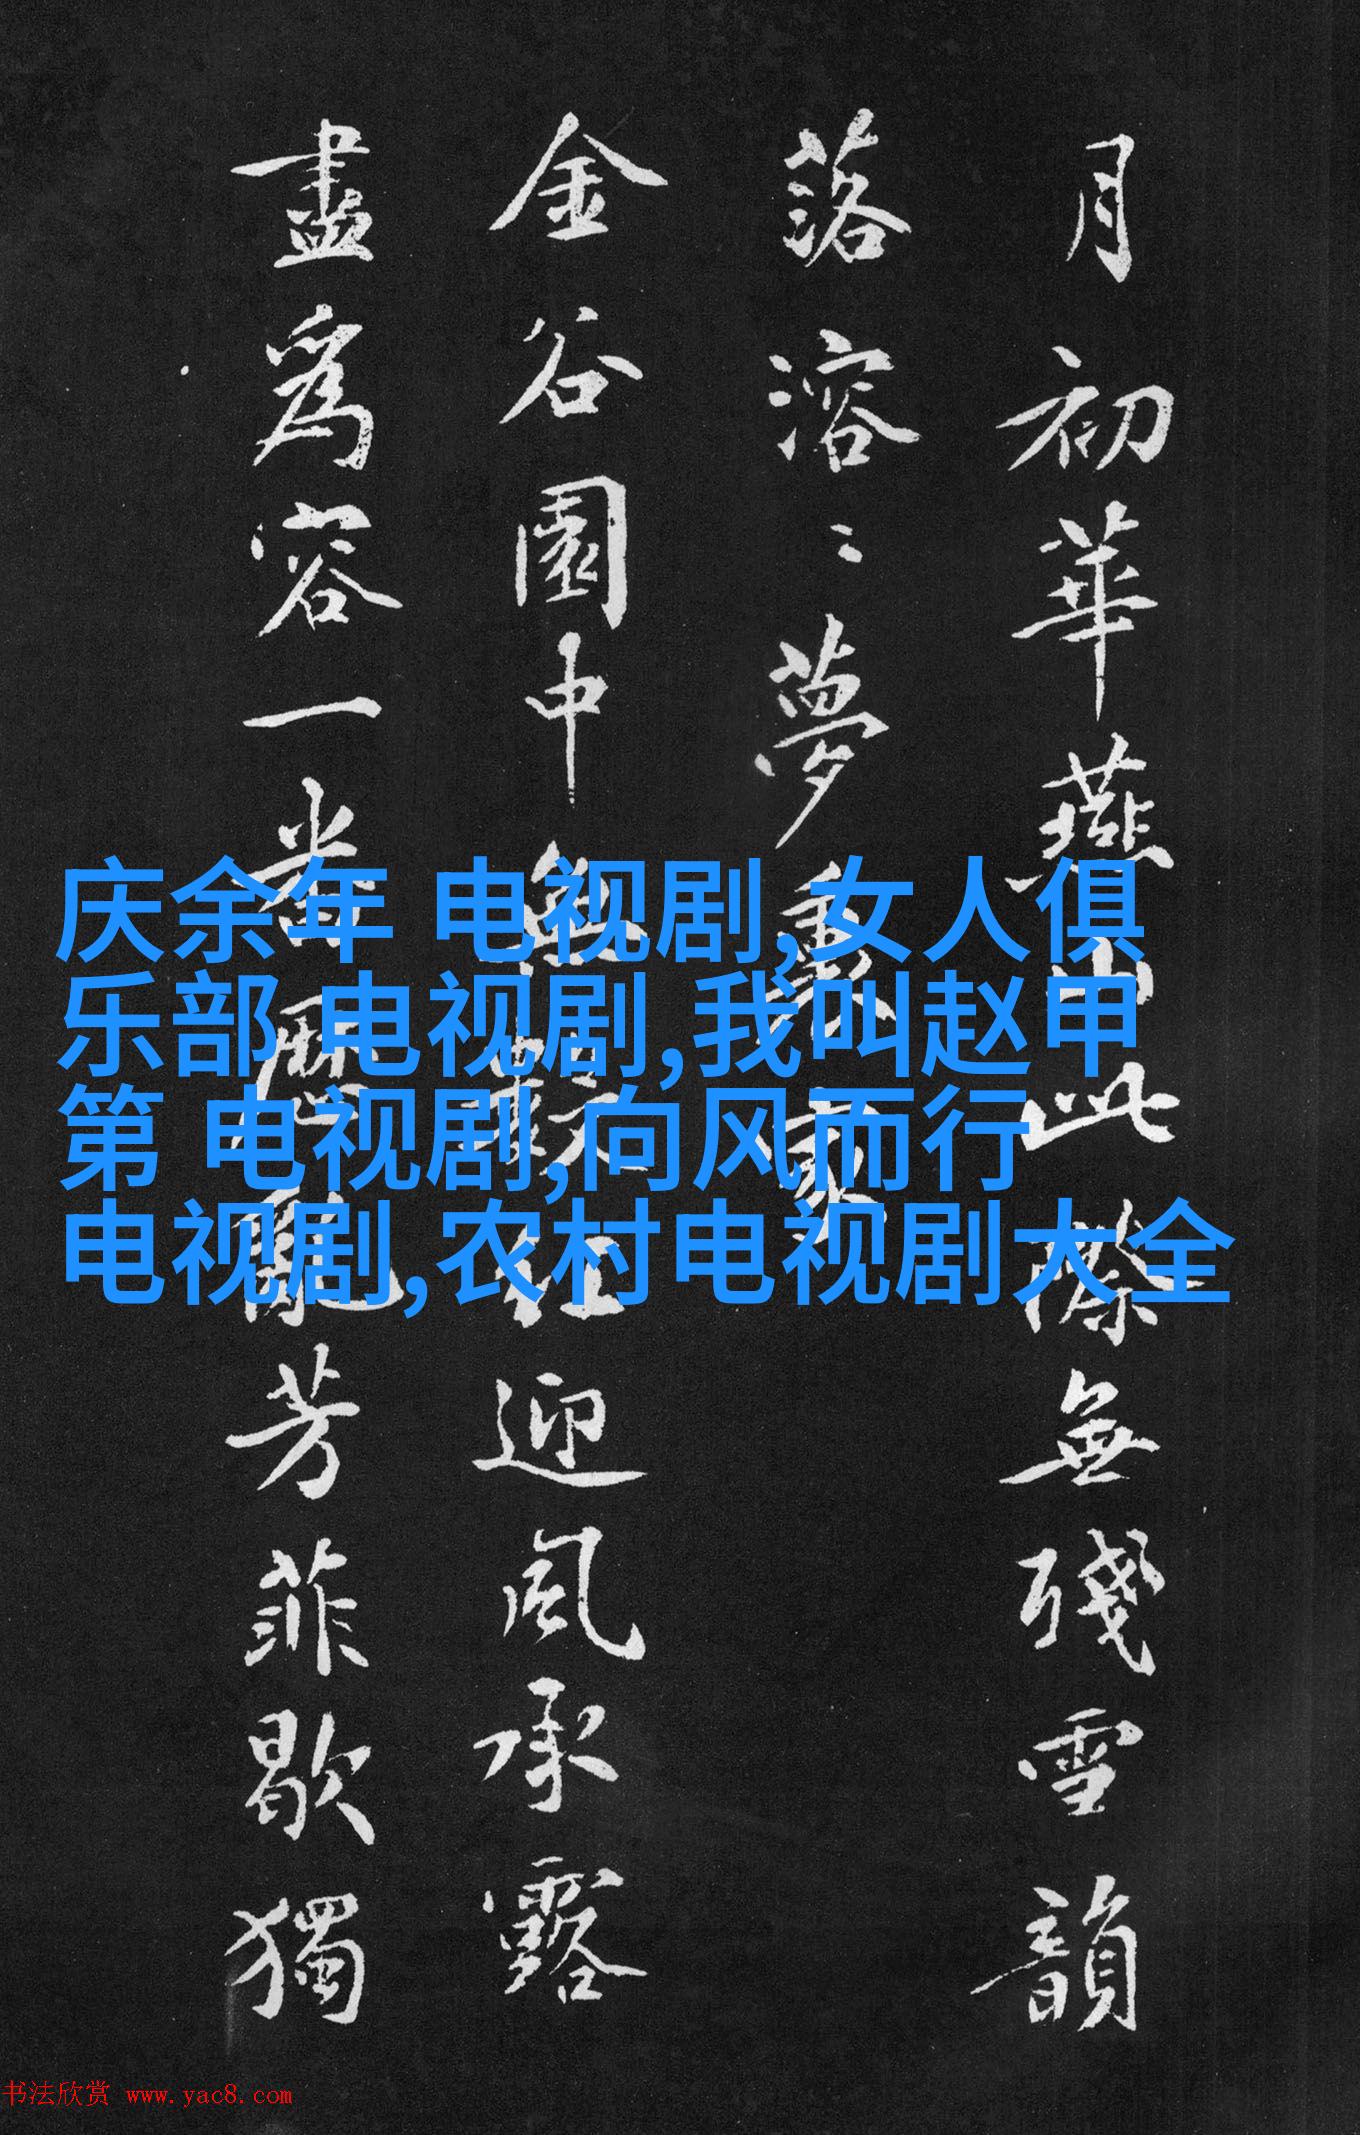 月初華燕山此際無殘雪韻
落溶〻夢裏家
金谷園中無數紅迎風承露
盡為容一番歷亂芳菲歇獨
庆余年 电视剧,女人俱
乐部 电视剧,我叫赵甲
第 电视剧,向风而行
电视剧,农村电视剧大全
书法欣赏 www.yac8.com